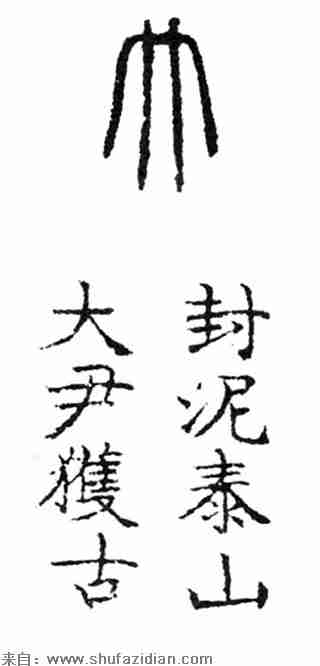 封泥泰山
大尹獲古
来自：www.shufazidian.com